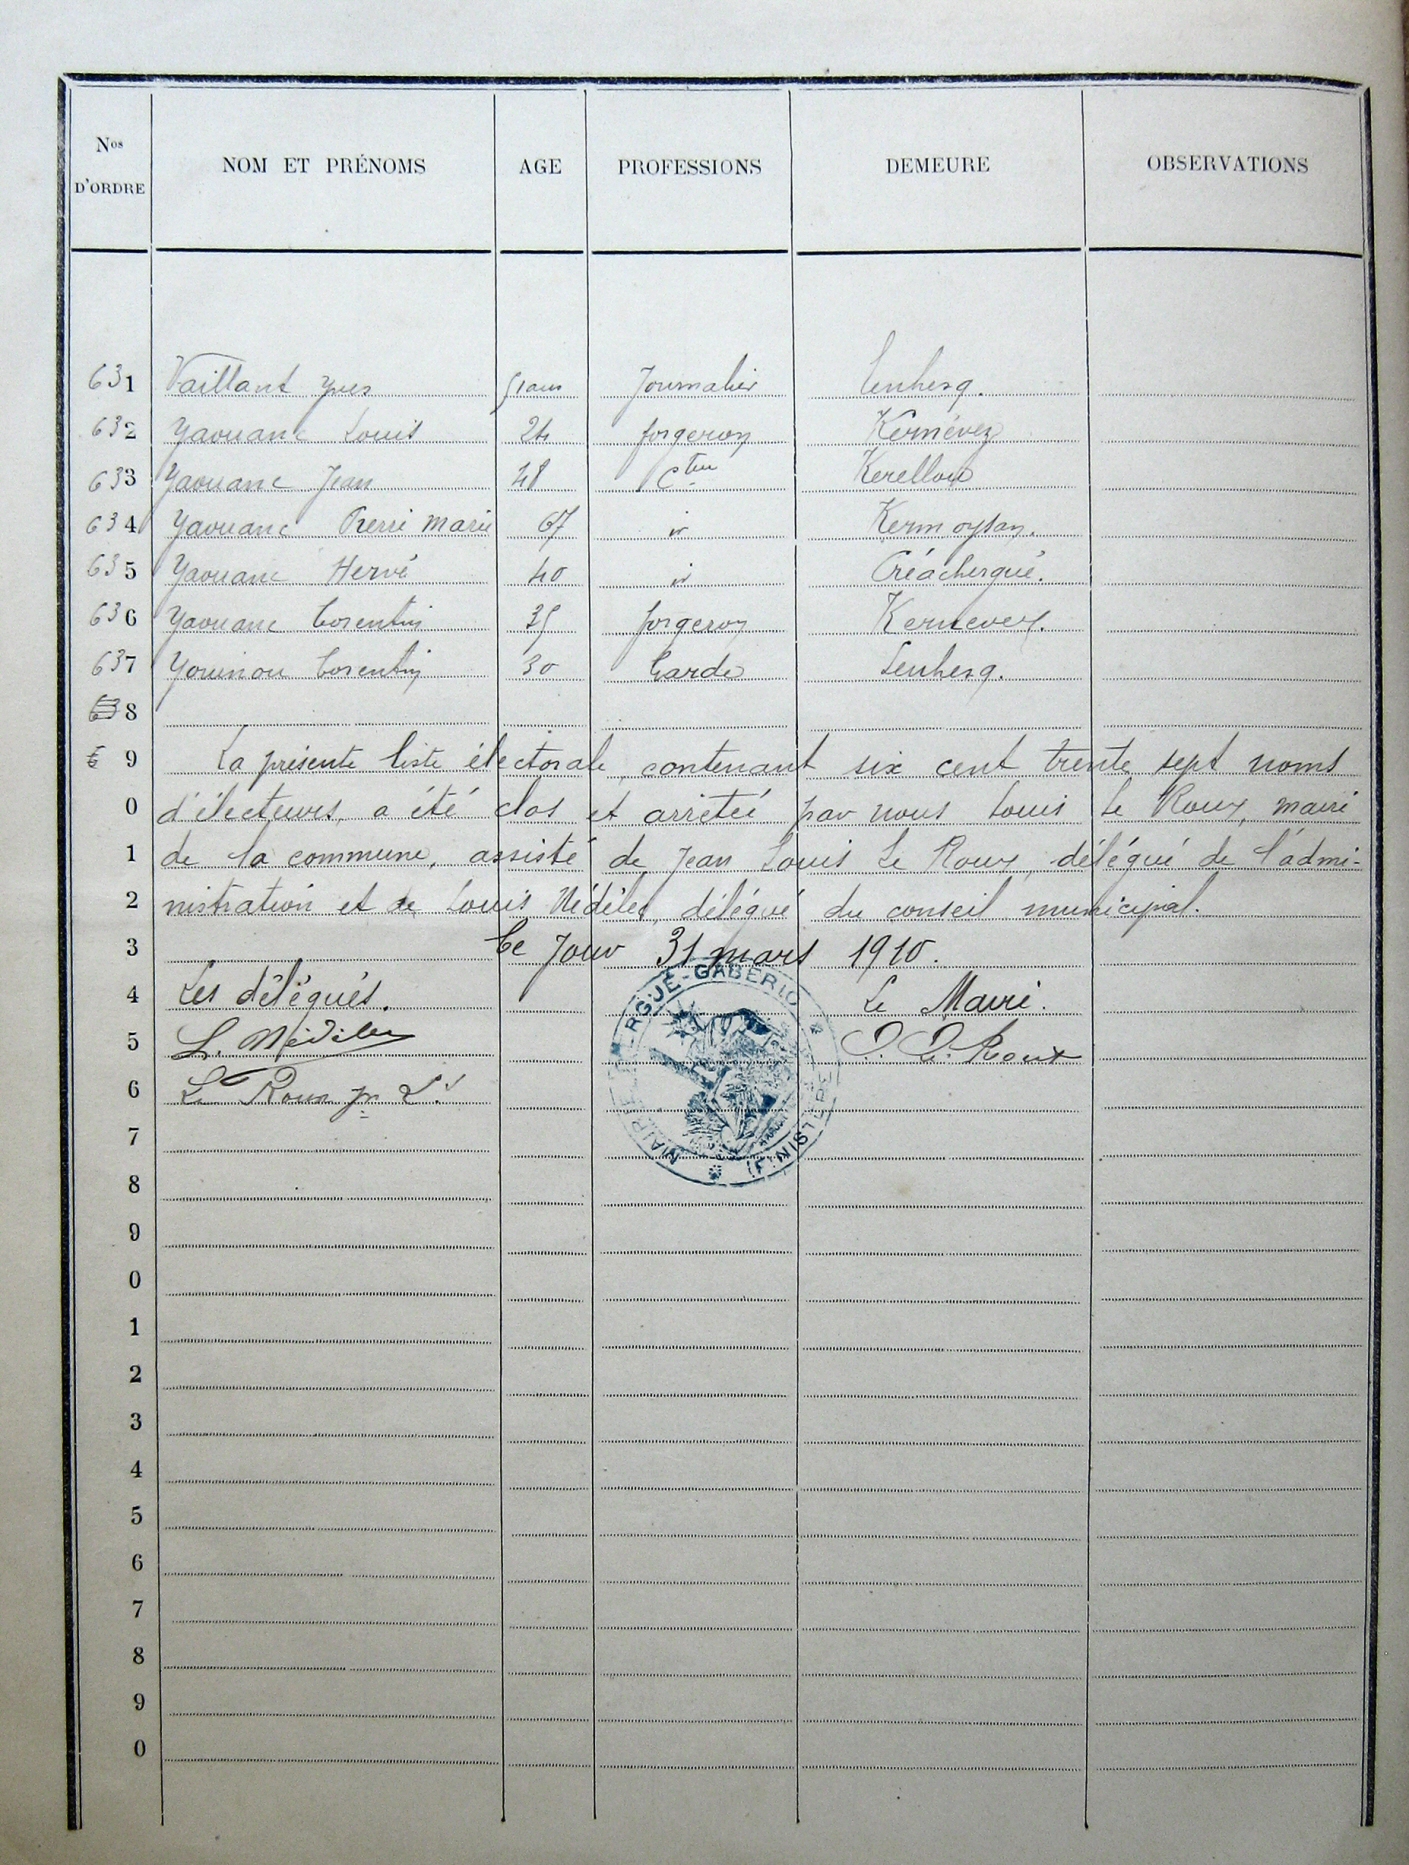 Nos D'ORDRE NOM ET PRÉNOMS AGE PROFESSIONS DEMEURE OBSERVATIONS
631 Vaillant Yves 51 ans Journalier Lenhesq.
632 Yaouanc Louis 24 forgeron Kernévez
633 Yaouanc Jean 48 Cteur Kerellou
634 Yaouanc Pierre Marie 67 id Kermoysan.
635 Yaouanc Hervé 40 id Créac'hergué.
636 Yaouanc Corentin 35 forgeron Kernevez.
637 Youinou Corentin 30 Garde Lenhesq.
638
6 9 La présente liste électorale, contenant six cent trente sept noms
0 d'électeurs, a été clos et arrêtée par nous Louis Le Roux, maire
1 de la commune, assisté de Jean Louis Le Roux, délégué de l'admi-
2 nistration et de Louis Nédélec, délégué du conseil municipal.
3 Ce Jour 31 mars 1910.
4 Les délégués. Le Maire.
5 L. Nédélec Le Roux
6 Le Roux jn Ls
MAIRIE D'ERGUÉ-GABÉRIC (FINISTÈRE)
7
8
9
0
1
2
3
4
5
6
7
8
9
0